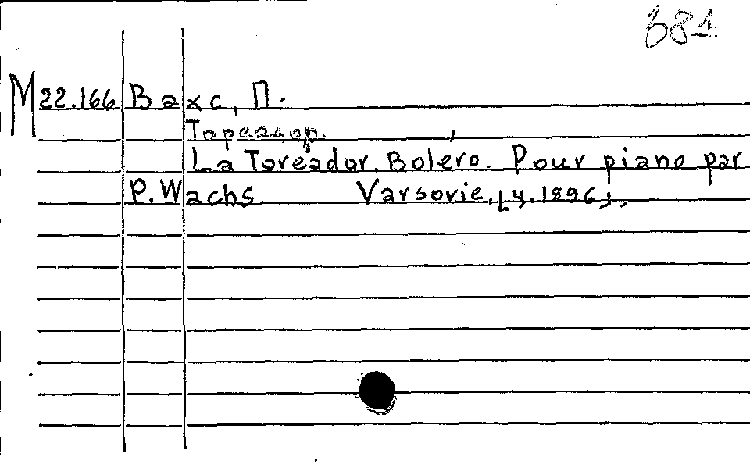 681
М 22.166 Вахс, П.
Тореадор.
La Toreador. Bolero. Pour piano par
P. Wachs Varsovie, [ц. 1896].